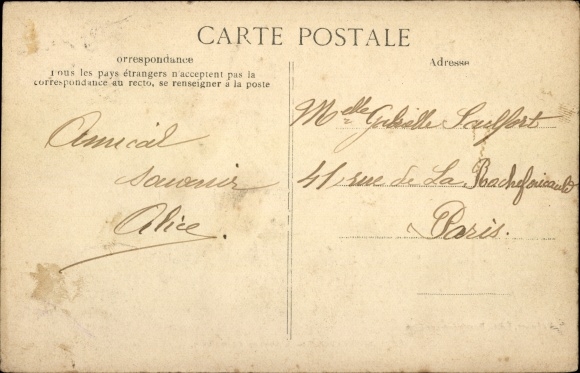 CARTE POSTALE
orrespondance
Tous les pays étrangers n'acceptent pas la
correspondance au recto, se renseigner à la poste
Amical
souvenir
Alice.
Adresse
Melle Gabrielle
41 rue de La Rochefoucauld
Paris.